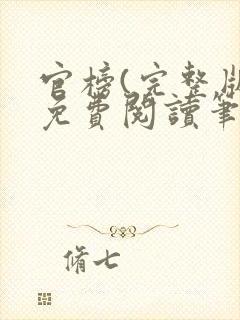 官榜(完整版
免費閱讀筆
脩七